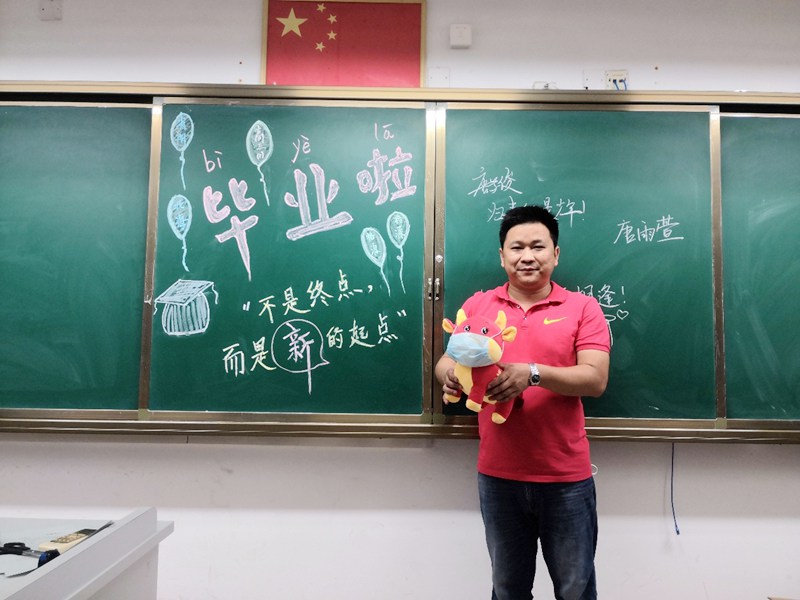 bì yè lā
毕业啦
"不是终点，
而是新的起点"
唐雨萱
逢！